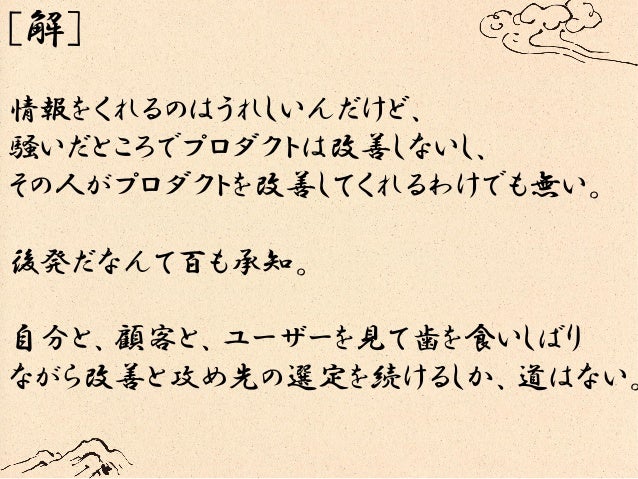 [解]
情報をくれるのはうれしいんだけど、
騒いだところでプロダクトは改善しないし、
その人がプロダクトを改善してくれるわけでも無い。
後発だなんて百も承知。
自分と、顧客と、ユーザーを見て歯を食いしばり
ながら改善と攻め先の選定を続けるしか、道はない。